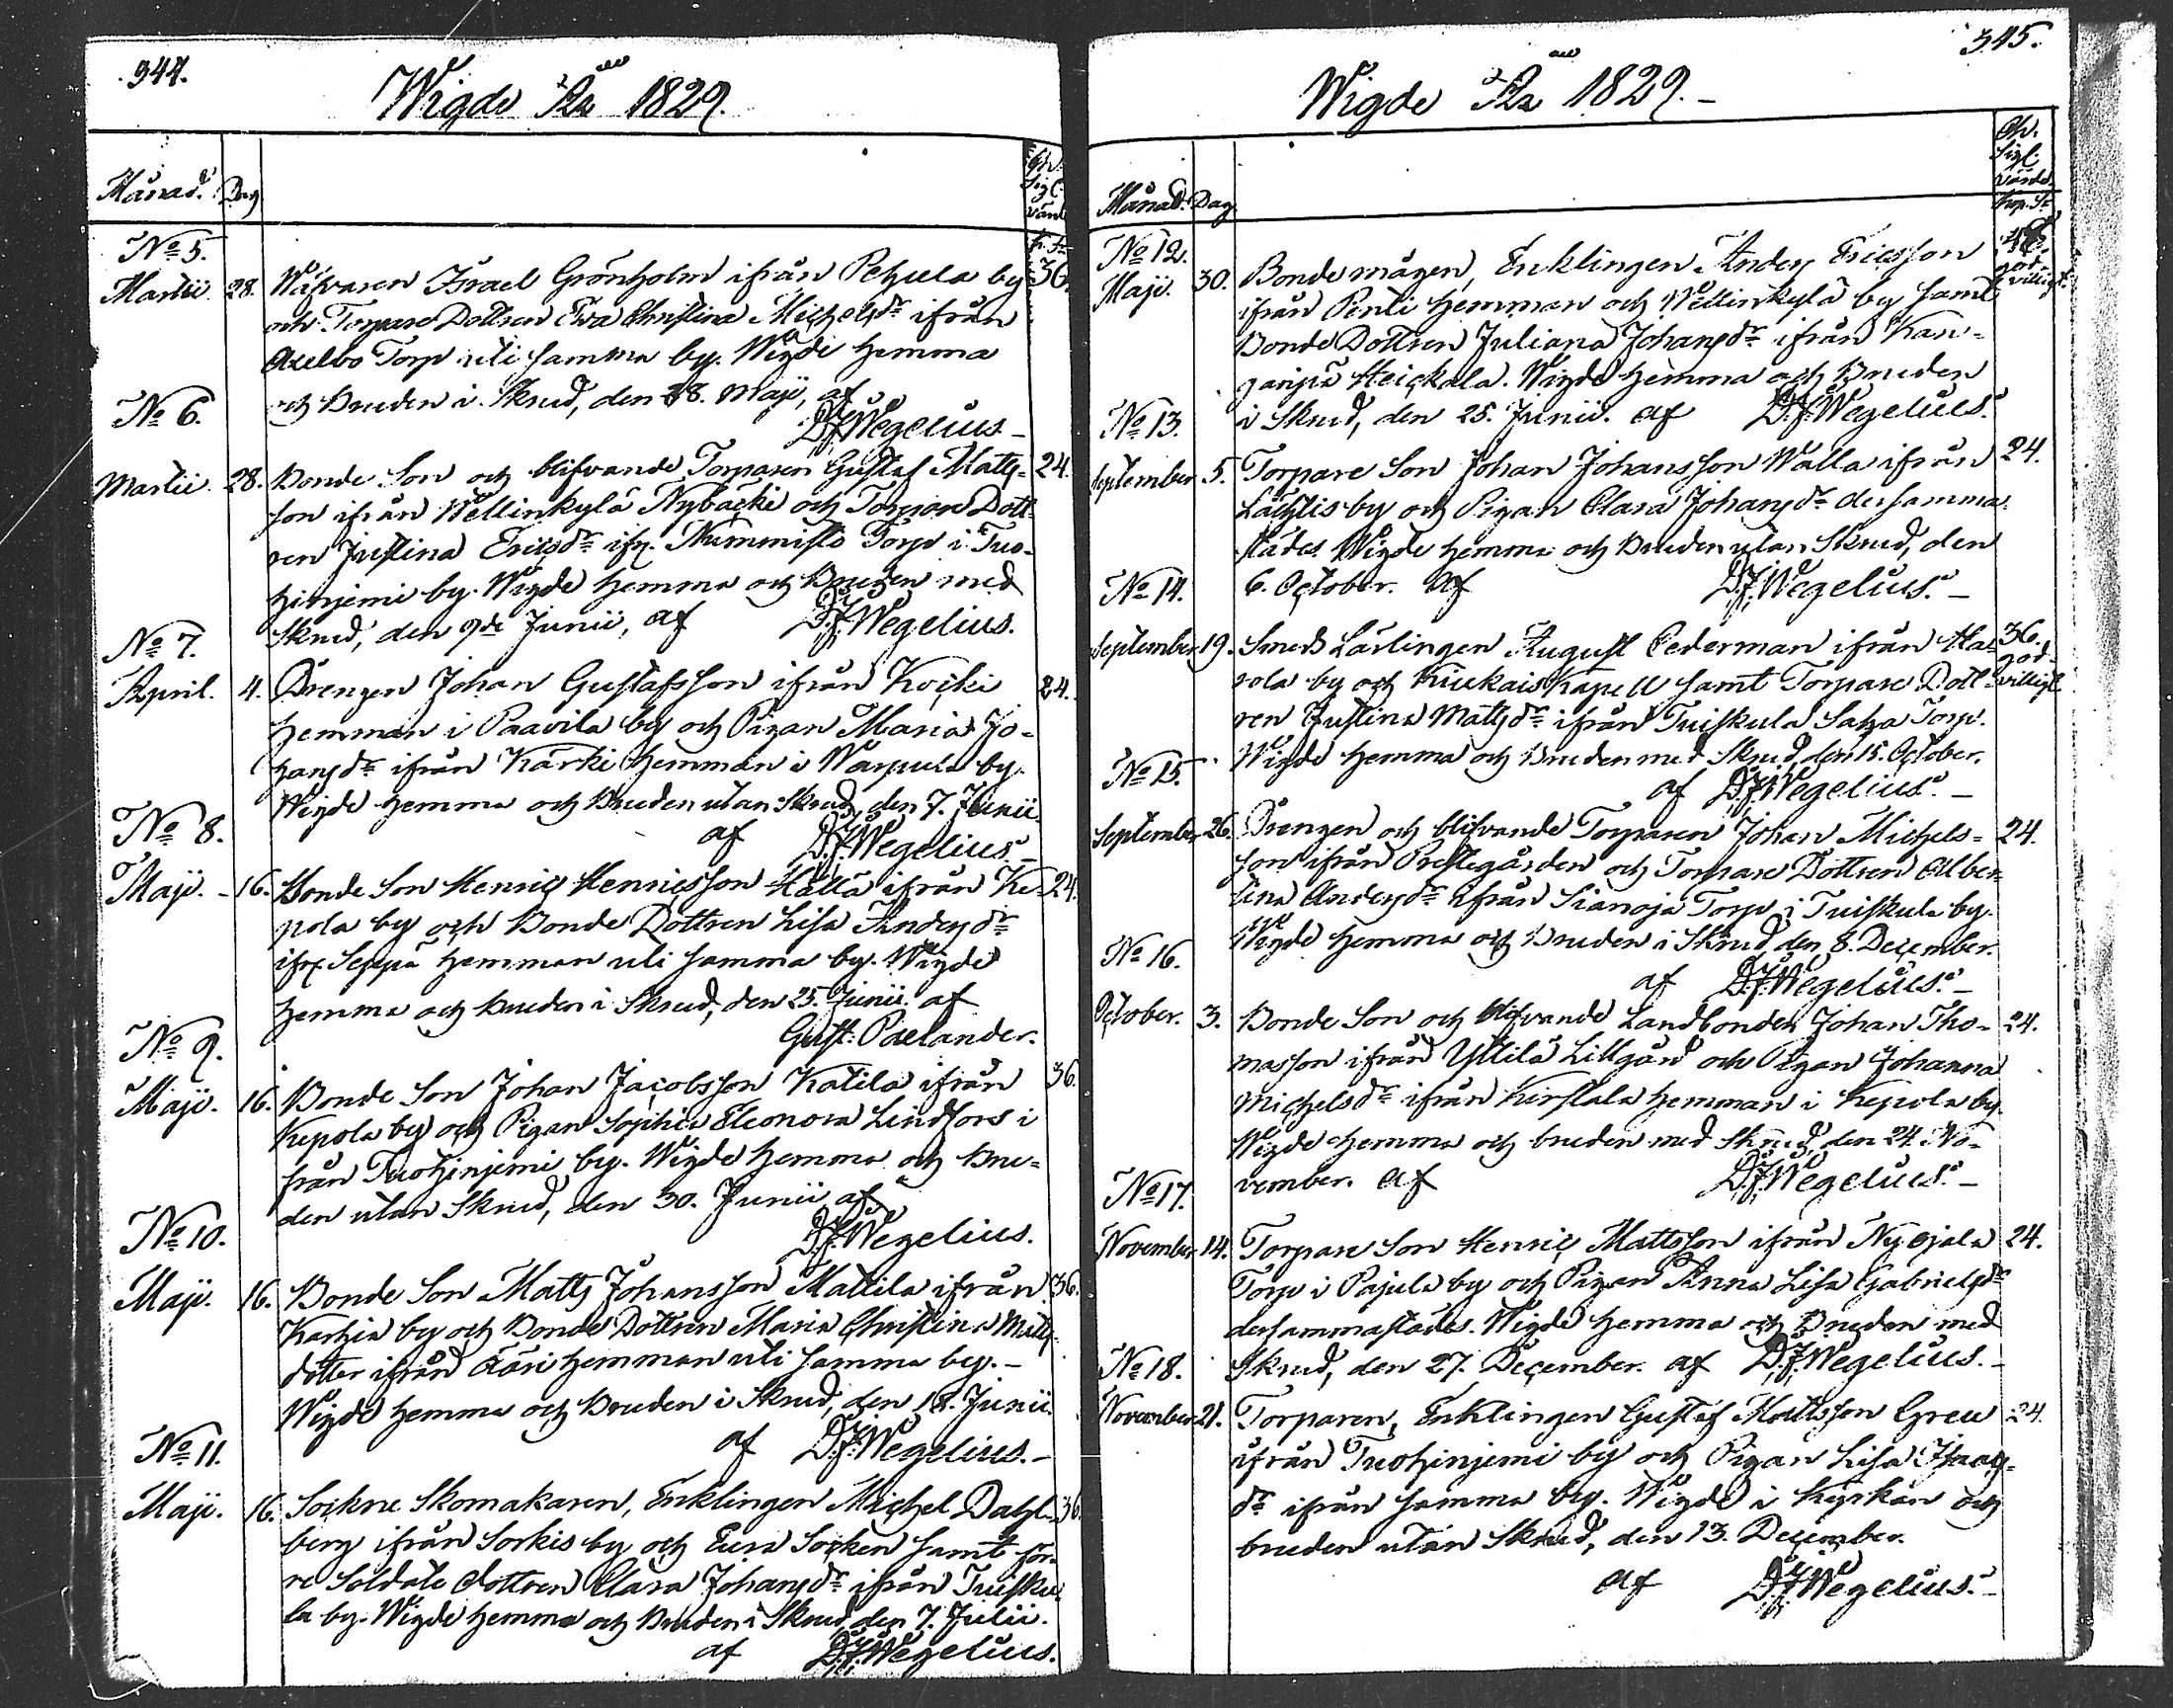 344.
Wigde År 1829.
Månad. Dag
Ch. Sigl. värde
k. Sr
No 5.
Martii 28. Wäfvaren Israel Grönholm ifrån Pehula by 36.
och Torpare Dottren Ewa Christina Michelsdr ifrån
Axelbo Torp uti samma by. Wigde hemma
och Bruden i Skrud, den 28. Maji, af
D.J. Wegelius.
No 6.
Martii. 28. Bonde Son och blifvande Torparen Gustaf Matts- 24.
son ifrån Wellinkylä Nybacki och Torpare Dott
ren Justina Ericsdr ifr. Nummisto Torp i Tuo-
hinjemi by. Wigde hemma och Bruden med
Skrud, den 9de Junii, af D.J. Wegelius.
No 7.
April. 4. Drengen Johan Gustafsson ifrån Kocki 24.
Hemman i Paavila by och Pigan Maria Jo-
hansdr ifrån Kärki Hemman i Warpula by.
Wigde hemma och Bruden utan Skrud, den 7. Junii.
af D.J. Wegelius.
No 8.
Maji. 16. Bonde Son Henric Henricsson Hällä ifrån Ke- 24.
pola by och Bonde Dottren Lisa Andersdr
ifr. Seppä Hemman uti samma by. Wigde
hemma och Bruden i Skrud, den 25. Junii. af
Gust. Paelander.
No 9.
Maji. 16. Bonde Son Johan Jacobsson Katila ifrån 36.
Kepola by och Pigan Sophia Eleonora Lindfors i
från Tuohinjemi by. Wigde hemma och Bru-
den utan Skrud, den 30. Junii af
D.J. Wegelius.
No 10.
Maji. 16. Bonde Son Matts Johansson Mattila ifrån 36.
Karhia by och Bonde Dottren Maria Christina Matts
dotter ifrån hemman uti samma by.
Wigde hemma och Bruden i Skrud, den 18. Junii.
af D.J. Wegelius.
No 11.
Maji. 16. Sockne Skomakaren, Enklingen Michel Dahl- 36.
berg ifrån Sorkis by och Eura Socken samt för-
re Soldate dottren Clara Johansdr ifrån Tuisku-
la by. Wigde hemma och Bruden i Skrud, den 7. Julii.
af D.J. Wegelius.
345.
Wigde År 1829.
Månad. Dag.
Ch. Sigl. värde
kop. Sr
No 12.
Maji. 30. Bonde mågen, Enklingen Anders Ericsson 48.
god villigt.
ifrån Penti Hemman och Wellinkylä by samt
Bonde Dottren Juliana Johansdr ifrån Kan-
hanpä Heickala. Wigde hemma och Bruden
i Skrud, den 25. Junii. af D.J. Wegelius.
No 13.
September 5. Torpare Son Johan Johansson Walla ifrån 24.
Lähtis by och Pigan Clara Johansdr dersamma-
städes. Wigde hemma och Bruden utan Skrud, den
6. October. af D.J. Wegelius.
No 14.
September 19. Smeds Lärlingen August Cederman ifrån Ha- 36.
god-
rola by och Kiukais Kapell samt Torpare Dott- villigt
ren Justina Mattsdr ifrån Tuiskula Torp.
Wigde hemma och Bruden med Skrud, den 15. October.
af D.J. Wegelius.
No 15.
September 26. Drengen och blifvande Torparen Johan Michels- 24.
son ifrån Prestegården och Torpare Dottren Alber-
tina Andersdr ifrån Sianoja Torp i Tuiskula by.
Wigde hemma och Bruden i Skrud, den 8. December.
af D.J. Wegelius.
No 16.
October. 3. Bonde Son och blifvande Landbonden Johan Tho- 24.
masson ifrån Yttilä Lillgård och Pigan Johanna
Michelsdr ifrån Kirstala hemman i Kepola by.
Wigde hemma och bruden med Skrud, den 24. No-
vember. af D.J. Wegelius.
No 17.
November 14. Torpare Son Henric Mattsson ifrån Ny ojala 24.
Torp i Pajula by och Pigan Anna Lisa Gabrielsdr
dersammastädes. Wigde hemma och Bruden med
Skrud, den 27. December. af D.J. Wegelius.
No 18.
November 21. Torparen, Enklingen Gustaf Mattsson Gren 24.
ifrån Tuohinjemi by och Pigan Lisa Isaacs-
dr ifrån samma by. Wigde i Kyrkan och
bruden utan Skrud, den 13. December.
af D.J. Wegelius.